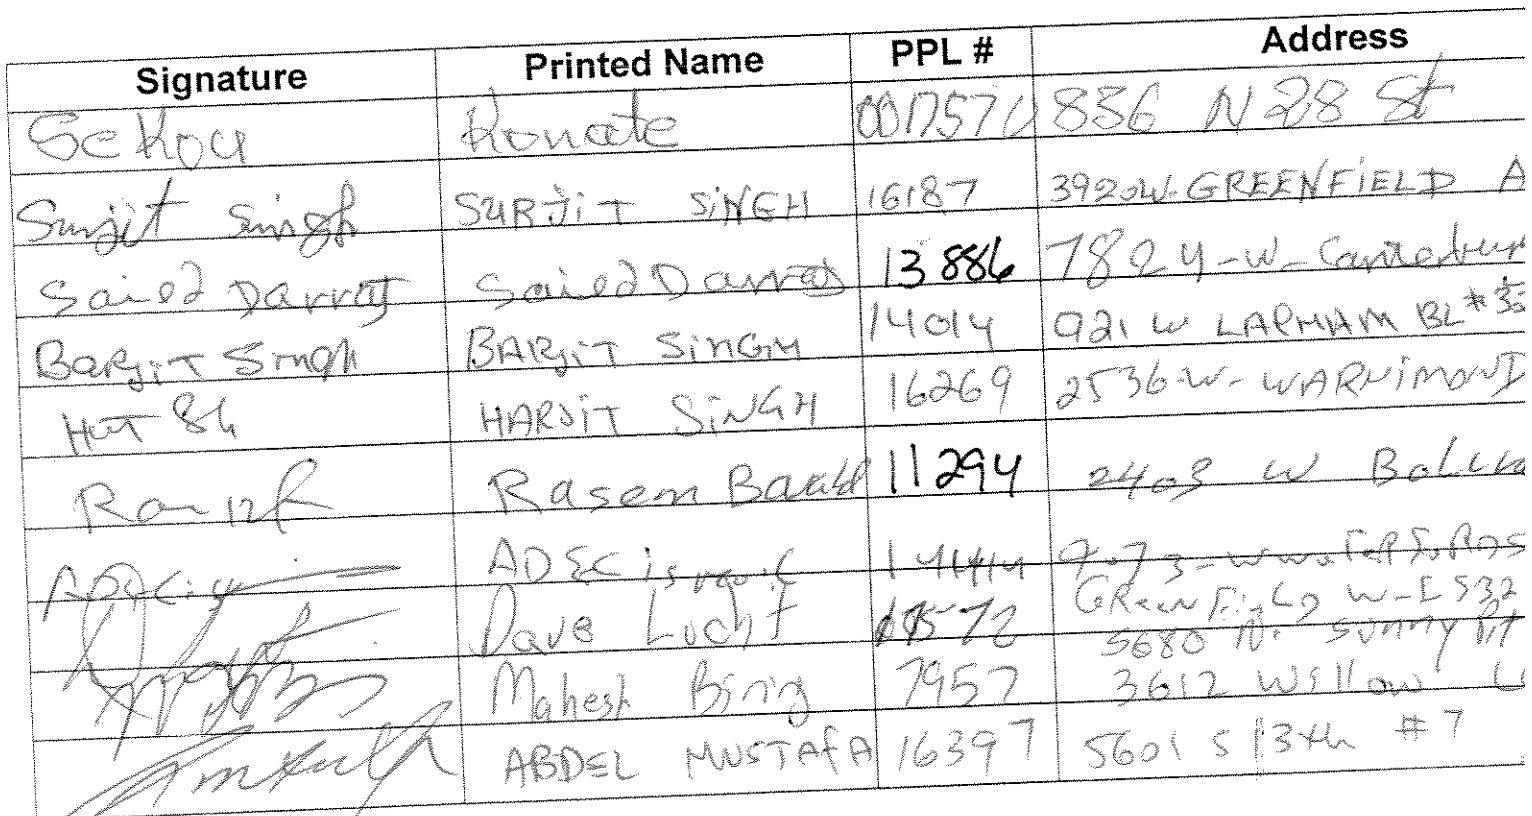 Signature Printed Name PPL # Address
Sekou Konate 0017570 836 N 28 St
Surjit Singh SURJIT SINGH 16187 3920 W. GREENFIELD A
Saied Darras Saied Darras 13886 7824-W-Canterbury
BARJIT Singh BARJIT SINGH 14014 921 W LAPHAM BL #
HARJIT SINGH 16269 2536-W-WARNIMONT
Rasem 11294 2403 W
14414
Greenfield W-I 532
Dave Lucht 5680 N. Sunny Pt
Mahesh Bing 7957 3612 Willow
ABDEL MUSTAFA 16397 5601 S 13th #7